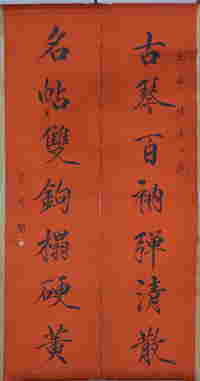 古琴百衲彈清散
名帖雙鉤搨硬黃